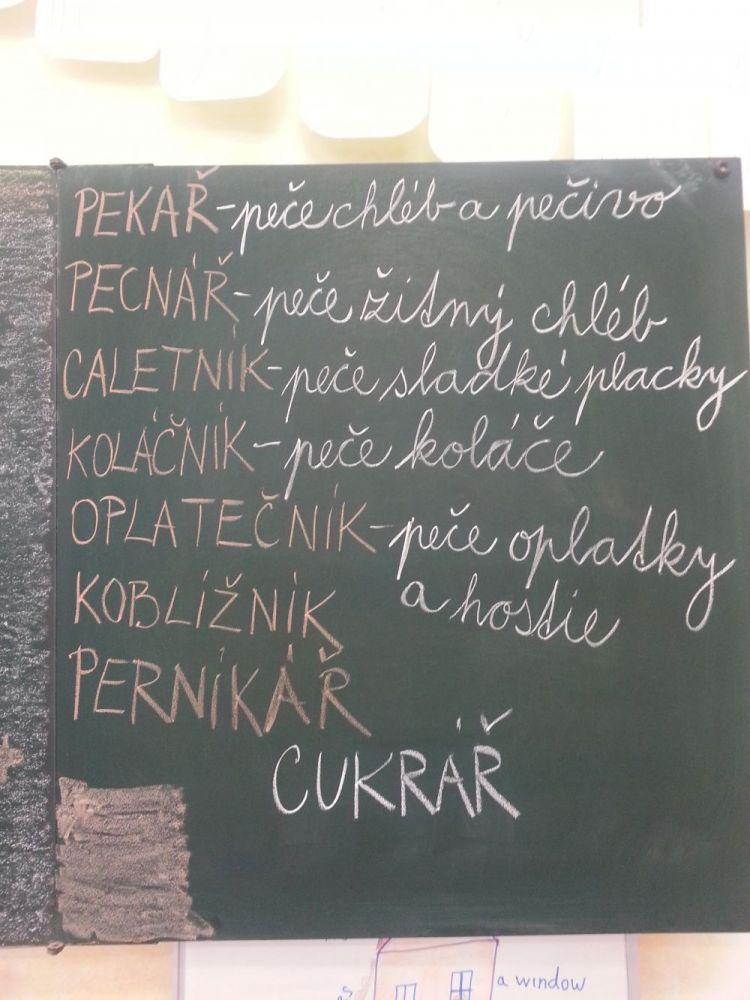 PEKAŘ-peče chléb a pečivo
PECNÁŘ-peče žitný chléb
CALETNÍK-peče sladké placky
KOLÁČNÍK-peče koláče
OPLATEČNÍK-peče oplatky
a hostie
KOBLÍŽNÍK
PERNÍKÁŘ
CUKRÁŘ
a window